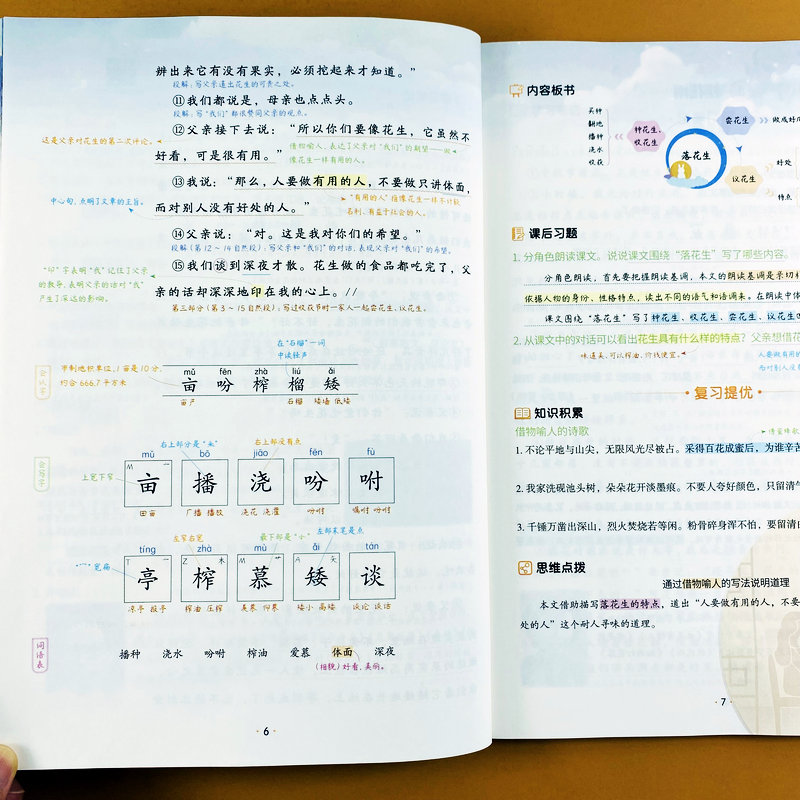 辨出来它有没有果实，必须挖起来才知道。”
段解：写父亲道出花生的可贵之处。
⑪我们都说是，母亲也点点头。
段解：写“我们”都很赞同父亲的观点。
⑫父亲接下去说：“所以你们要像花生，它虽然不
这是父亲对花生的第二次评论。
借物喻人，表达了父亲对“我们”的期望——做
好看，可是很有用。”
像花生一样有用的人。
⑬我说：“那么，人要做有用的人，不要做只讲体面，
中心句，点明了文章的主旨。
“有用的人”指像花生一样不计较
而对别人没有好处的人。”
名利、有益于社会的人。
⑭父亲说：“对。这是我对你们的希望。”
段解（第12～14自然段）：写父亲和“我们”的对话，表现父亲对“我们”的希望。
⑮我们谈到深夜才散。花生做的食品都吃完了，父
“印”字表明“我”记住了父亲
的教导，表明父亲的话对“我”
产生了深远的影响。
亲的话却深深地印在我的心上。//
第三部分（第3～15自然段）：写过收获节时一家人一起尝花生、议花生。
在“石榴”一词
中读轻声
会认字
市制地积单位，1亩是10分，
约合666.7平方米
mǔ fēn zhà liú ǎi
亩 吩 榨 榴 矮
亩产 石榴 矮墙 低矮
会写字
右上部分是“米” 右上部没有点
mǔ bō jiāo fēn fù
上宽下窄
亩 播 浇 吩 咐
田亩 广播 播放 浇花 浇灌 吩咐 嘱咐 吩咐
左窄右宽 最下部是“小” 左部末笔是点
tíng zhà mù ǎi tán
“冖”宽扁
亭 榨 慕 矮 谈
凉亭 报亭 榨油 压榨 羡慕 仰慕 矮小 高矮 谈论 谈话
词语表
播种 浇水 吩咐 榨油 爱慕 体面 深夜
（相貌）好看，美丽。
· 6 ·
内容板书
买种
翻地
播种
浇水
收获
种花生、
收花生
落花生
尝花生
做成好
议花生
好处
特点
课后习题
1. 分角色朗读课文。说说课文围绕“落花生”写了哪些内容。
分角色朗读，首先要把握朗读基调，本文的朗读基调是亲切
依据人物的身份、性格特点，读出不同的语气和语调来。在朗读中体
课文围绕“落花生”写了种花生、收花生、尝花生、议花生
2. 从课文中的对话可以看出花生具有什么样的特点？父亲想借花
味道美、可以榨油、价钱便宜。
人要做有用的
而对别人没
· 复习提优 ·
知识积累
借物喻人的诗歌
1. 不论平地与山尖，无限风光尽被占。采得百花成蜜后，为谁辛苦
2. 我家洗砚池头树，朵朵花开淡墨痕。不要人夸好颜色，只留清气
3. 千锤万凿出深山，烈火焚烧若等闲。粉骨碎身浑不怕，要留清白
思维点拨
通过借物喻人的写法说明道理
本文借助描写落花生的特点，道出“人要做有用的人，不要
处的人”这个耐人寻味的道理。
· 7 ·